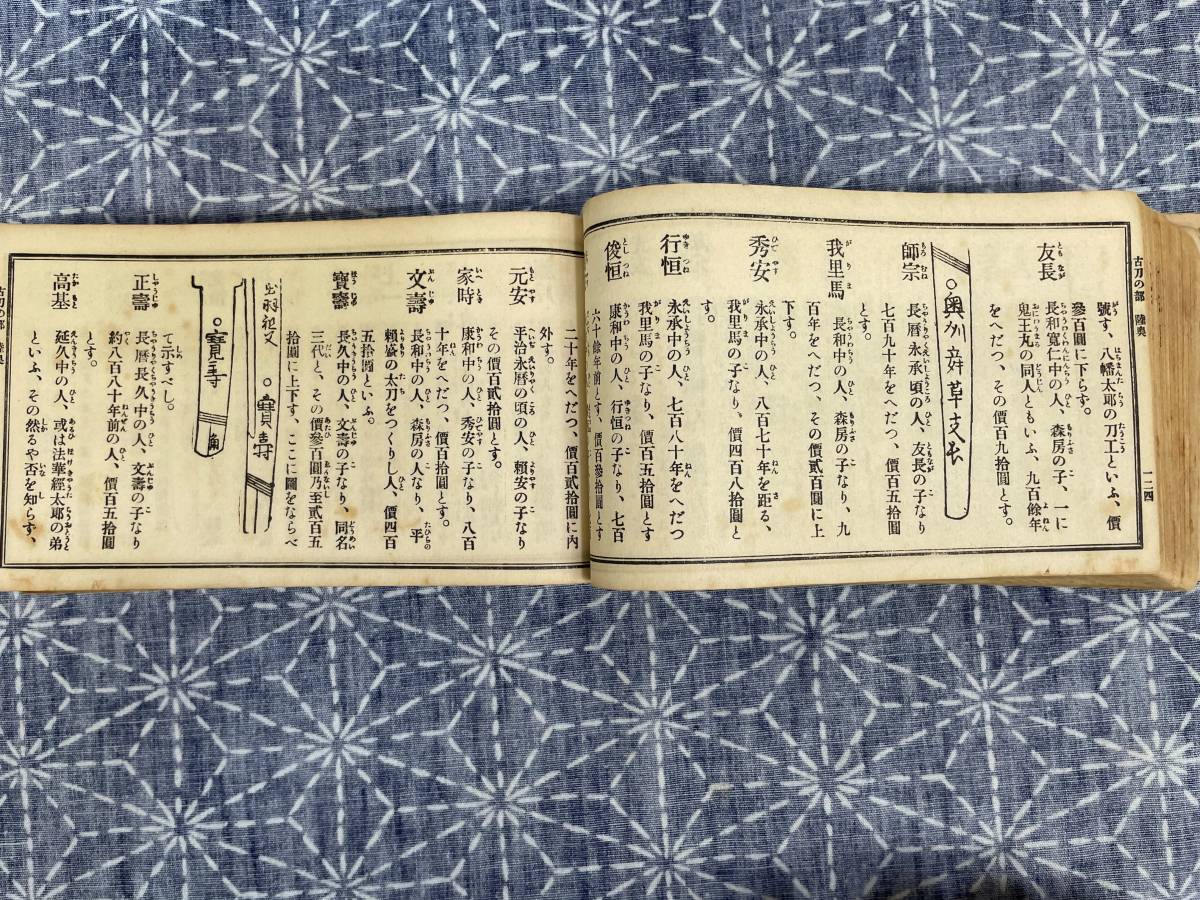 古刀の部 陸奥
一二四
號す、八幡太郎の刀工といふ、價
參百圓に下らず。
友長
長和寬仁中の人、森房の子、一に
鬼王丸の同人ともいふ、九百餘年
をへだつ、その價百九拾圓とす。
奥州
草
師宗
長曆永承頃の人、友長の子なり
七百九十年をへだつ、價百五拾圓
とす。
我里馬
長和中の人、森房の子なり、九
百年をへだつ、その價貳百圓に上
下す。
秀安
永承中の人、八百七十年を距る、
我里馬の子なり、價四百八拾圓と
す。
行恒
永承中の人、七百八十年をへだつ
我里馬の子なり、價百五拾圓とす
俊恒
康和中の人、行恒の子なり、七百
六十餘年前とす、價百參拾圓とす
二十年をへだつ、價百貳拾圓に內
外す。
元安
平治永曆の頃の人、賴安の子なり
その價百貳拾圓とす。
家時
康和中の人、秀安の子なり、八百
十年をへだつ、價百拾圓とす。
文壽
長和中の人、森房の人なり、平
賴盛の太刀をつくりし人、價四百
五拾圓といふ。
寶壽
長久中の人、文壽の子なり、同名
三代と、その價參百圓乃至貳百五
拾圓に上下す、ここに圖をならべ
寶壽
寶寿
て示すべし。
正壽
長曆長久中の人、文壽の子なり
約八百八十年前の人、價百五拾圓
とす。
高基
延久中の人、或は法華經太郎の弟
といふ、その然るや否を知らず、
古刀の部 陸奥